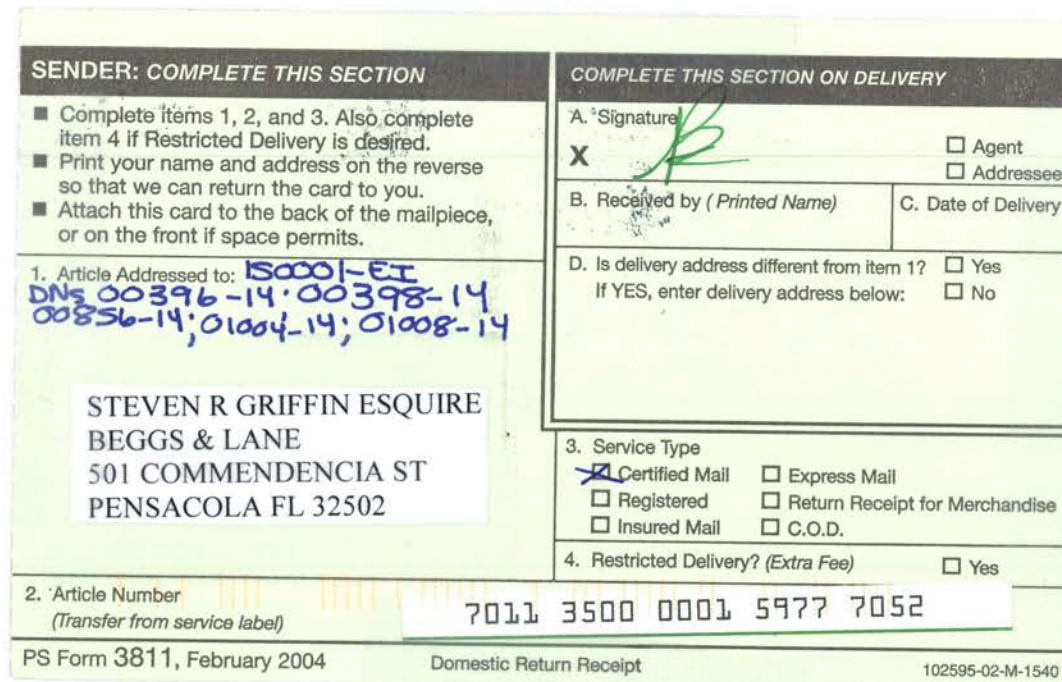 SENDER: COMPLETE THIS SECTION
■ Complete items 1, 2, and 3. Also complete
item 4 if Restricted Delivery is desired.
■ Print your name and address on the reverse
so that we can return the card to you.
■ Attach this card to the back of the mailpiece,
or on the front if space permits.
1. Article Addressed to: 150001-EI
DNs 00396-14; 00398-14
00856-14; 01004-14; 01008-14
STEVEN R GRIFFIN ESQUIRE
BEGGS & LANE
501 COMMENDENCIA ST
PENSACOLA FL 32502
2. Article Number
(Transfer from service label)
7011 3500 0001 5977 7052
COMPLETE THIS SECTION ON DELIVERY
A. Signature
X
☐ Agent
☐ Addressee
B. Received by (Printed Name)
C. Date of Delivery
D. Is delivery address different from item 1? ☐ Yes
If YES, enter delivery address below: ☐ No
3. Service Type
☒ Certified Mail ☐ Express Mail
☐ Registered ☐ Return Receipt for Merchandise
☐ Insured Mail ☐ C.O.D.
4. Restricted Delivery? (Extra Fee) ☐ Yes
PS Form 3811, February 2004 Domestic Return Receipt 102595-02-M-1540